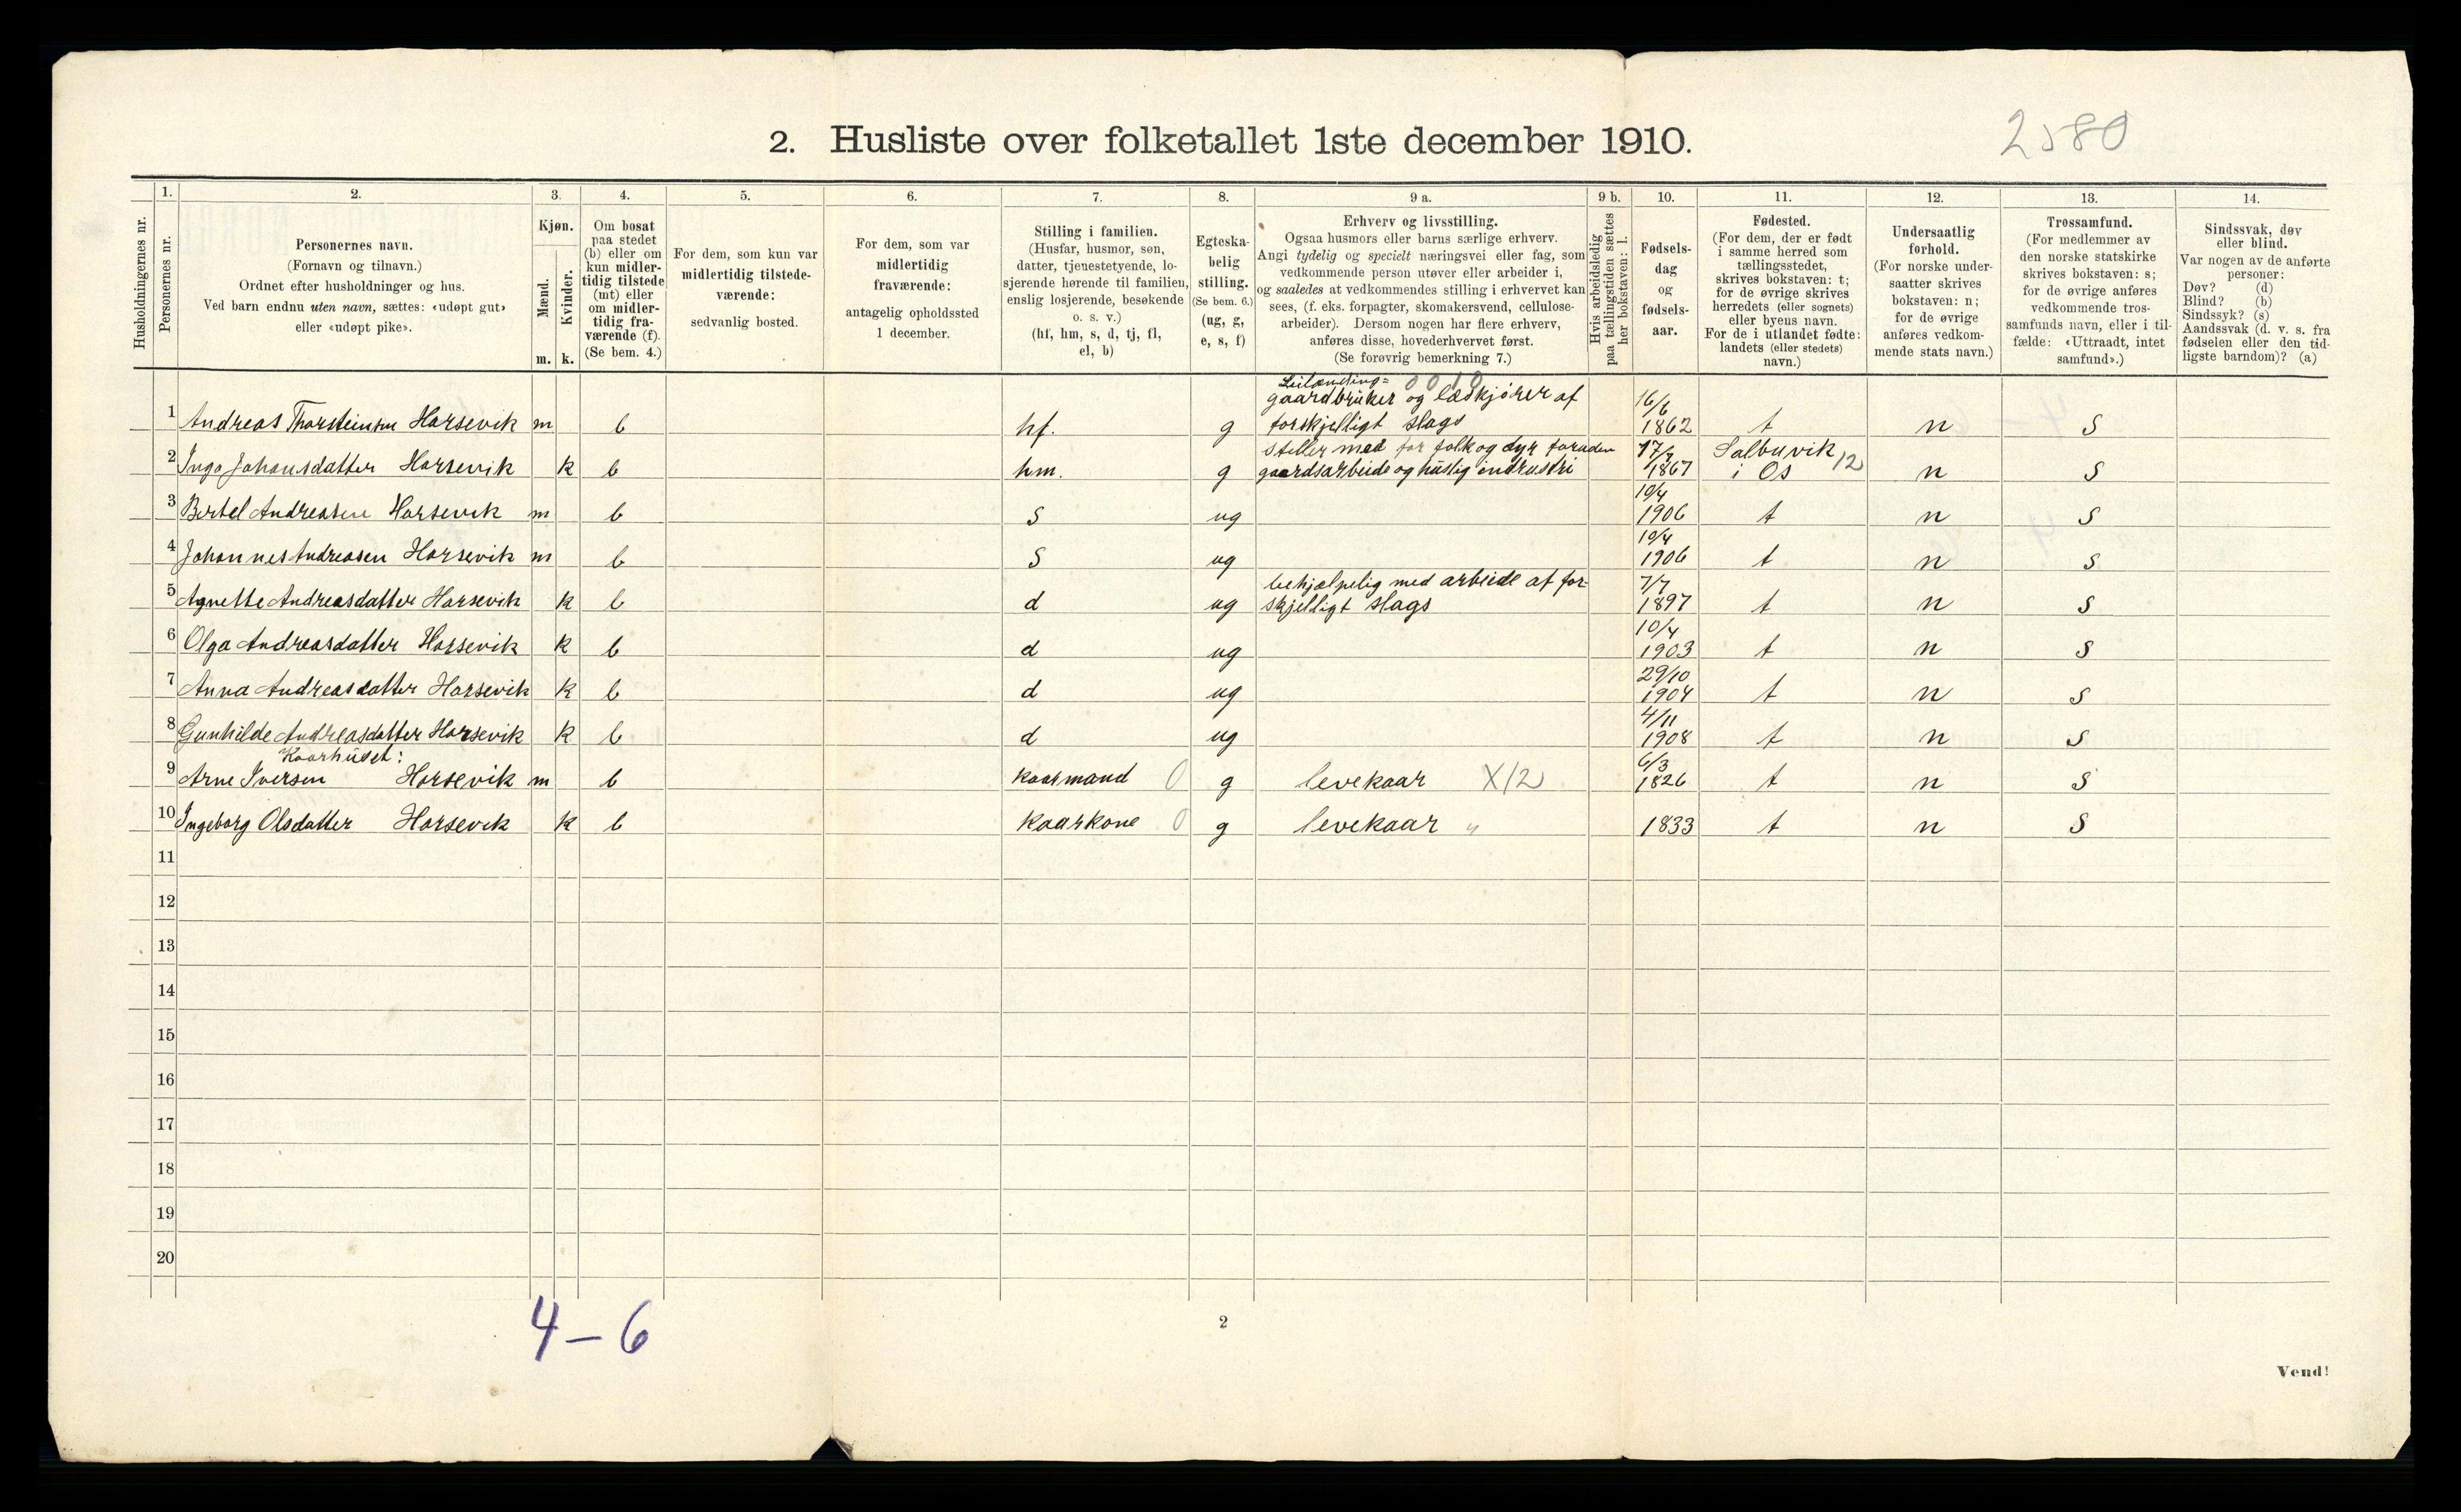 2. Husliste over folketallet 1ste december 1910.
2580
Husholdningernes nr.
1.
Personernes nr.
2.
Personernes navn.
(Fornavn og tilnavn.)
Ordnet efter husholdninger og hus.
Ved barn endnu uten navn, sættes: «udøpt gut»
eller «udøpt pike».
3.
Kjøn.
Mænd.
Kvinder.
m. k.
4.
Om bosat
paa stedet
(b) eller om
kun midler-
tidig tilstede
(mt) eller
om midler-
tidig fra-
værende (f).
(Se bem. 4.)
5.
For dem, som kun var
midlertidig tilstede-
værende:
sedvanlig bosted.
6.
For dem, som var
midlertidig
fraværende:
antagelig opholdssted
1 december.
7.
Stilling i familien.
(Husfar, husmor, søn,
datter, tjenestetyende, lo-
sjerende hørende til familien,
enslig losjerende, besøkende
o. s. v.)
(hf, hm, s, d, tj, fl,
el, b)
8.
Egteska-
belig
stilling.
(Se bem. 6.)
(ug, g,
e, s, f)
9 a.
Erhverv og livsstilling.
Ogsaa husmors eller barns særlige erhverv.
Angi tydelig og specielt næringsvei eller fag, som
vedkommende person utøver eller arbeider i,
og saaledes at vedkommendes stilling i erhvervet kan
sees, (f. eks. forpagter, skomakersvend, cellulose-
arbeider). Dersom nogen har flere erhverv,
anføres disse, hovederhvervet først.
(Se forøvrig bemerkning 7.)
9 b.
Hvis arbeidsledig
paa tællingstiden sættes
her bokstaven: l.
10.
Fødsels-
dag
og
fødsels-
aar.
11.
Fødested.
(For dem, der er født
i samme herred som
tællingsstedet,
skrives bokstaven: t;
for de øvrige skrives
herredets (eller sognets)
eller byens navn.
For de i utlandet fødte:
landets (eller stedets)
navn.)
12.
Undersaatlig
forhold.
(For norske under-
saatter skrives
bokstaven: n;
for de øvrige
anføres vedkom-
mende stats navn.)
13.
Trossamfund.
(For medlemmer av
den norske statskirke
skrives bokstaven: s;
for de øvrige anføres
vedkommende tros-
samfunds navn, eller i til-
fælde: «Uttraadt, intet
samfund».)
14.
Sindssvak, døv
eller blind.
Var nogen av de anførte
personer:
Døv? (d)
Blind? (b)
Sindssyk? (s)
Aandssvak (d. v. s. fra
fødselen eller den tid-
ligste barndom)? (a)
Leilænding= 0010
gaardbruker og læskjører af 16/6
1 Andreas Thorsteinsen Horsevik m b hf. g forskjelligt slags 1862 t n s
steller med for folk og dyr foruden 17/7 Salbuvik
2 Inga Johansdatter Horsevik k b hm. g gaardsarbeide og huslig indrustri 1867 i Os 12 n s
10/4
3 Bertel Andreasen Horsevik m b s ug 1906 t n s
10/4
4 Johannes Andreasen Horsevik m b s ug 1906 t n s
behjælpelig med arbeide af for- 7/7
5 Agnette Andreasdatter Horsevik k b d ug skjelligt slags 1897 t n s
10/4
6 Olga Andreasdatter Horsevik k b d ug 1903 t n s
29/10
7 Anna Andreasdatter Horsevik k b d ug 1904 t n s
4/11
8 Gunhilde Andreasdatter Horsevik k b d ug 1908 t n s
Kaarhuset: 6/3
9 Arne Iversen Horsevik m b kaarmand 0 g levekaar X12 1826 t n s
10 Ingeborg Olsdatter Horsevik k b kaarkone 0 g levekaar " 1833 t n s
11
12
13
14
15
16
17
18
19
20
4-6
2
Vend!